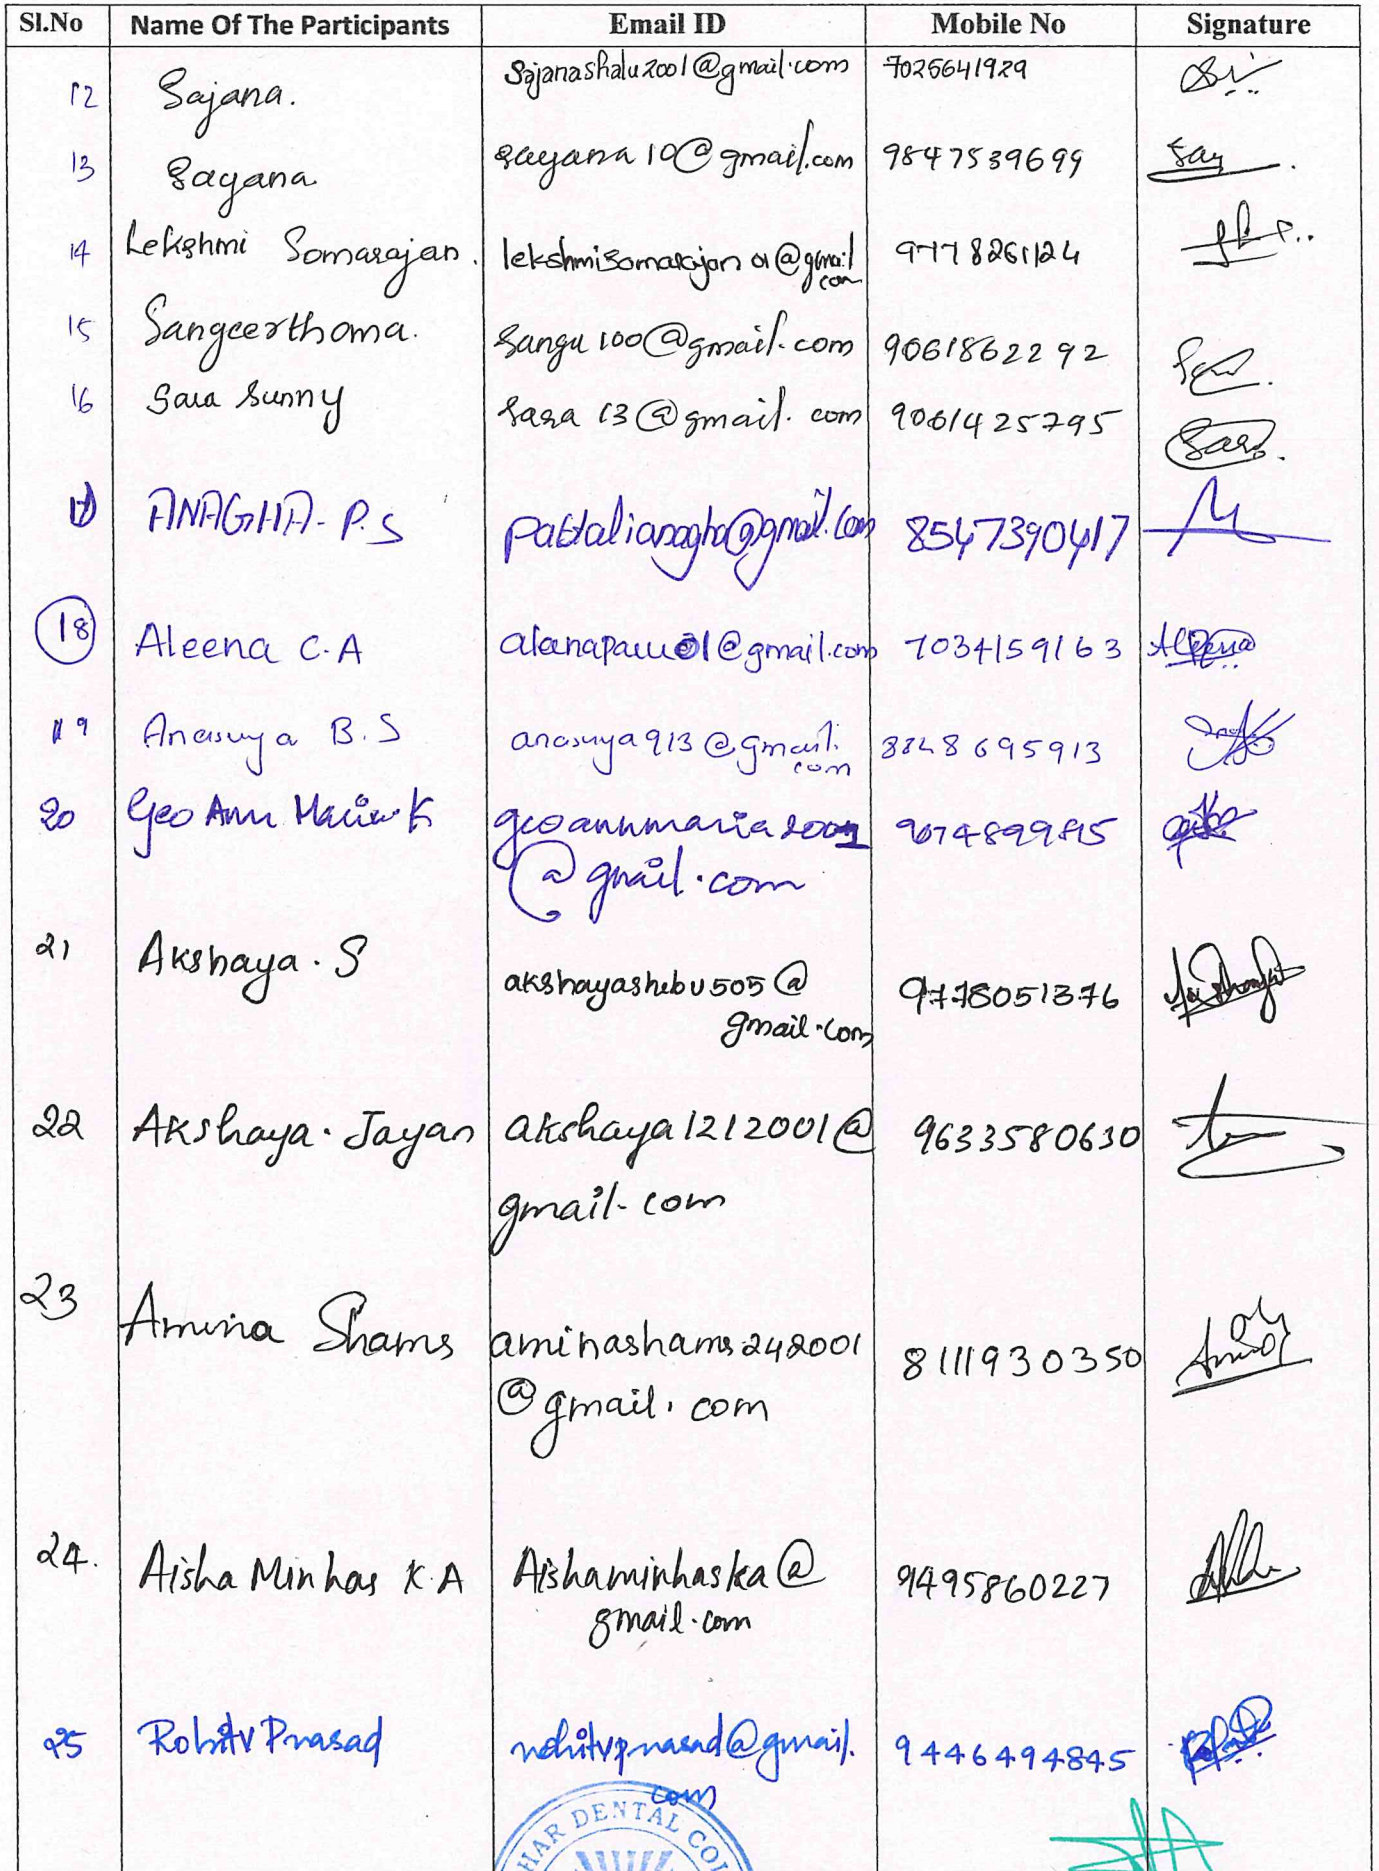 Sl.No Name Of The Participants Email ID Mobile No Signature
12 Sajana. Sajanashalu2001@gmail.com 7025641929
13 Sayana sayana10@gmail.com 9847539699 Say
14 Lekshmi Somarajan. lekshmisomarajan01@gmail
com 9778261124
15 Sangeerthoma. Sangu100@gmail.com 9061862292
16 Sara Sunny sara13@gmail.com 9061425795 Sara.
17 ANAGHA-P.S @gmail.com 8547390417
18 Aleena C.A @gmail.com 7034159163 Aleena
19 Anasuya B.S anasuya913@gmail.
com 8848695913
20 Geo Ann Maria K geoannmaria2001
@gmail.com
21 Akshaya.S akshayashibu505@
gmail.com 9778051376
22 Akshaya.Jayan akshaya1212001@
gmail.com 9633580630
23 Amina Shams aminashams242001
@gmail.com 8111930350
24. Aisha Minhas K.A Aishaminhaska@
gmail.com 9495860227
25 Rohitv Prasad rohitvprasad@gmail.
com 9446494845
HAR DENTAL COL